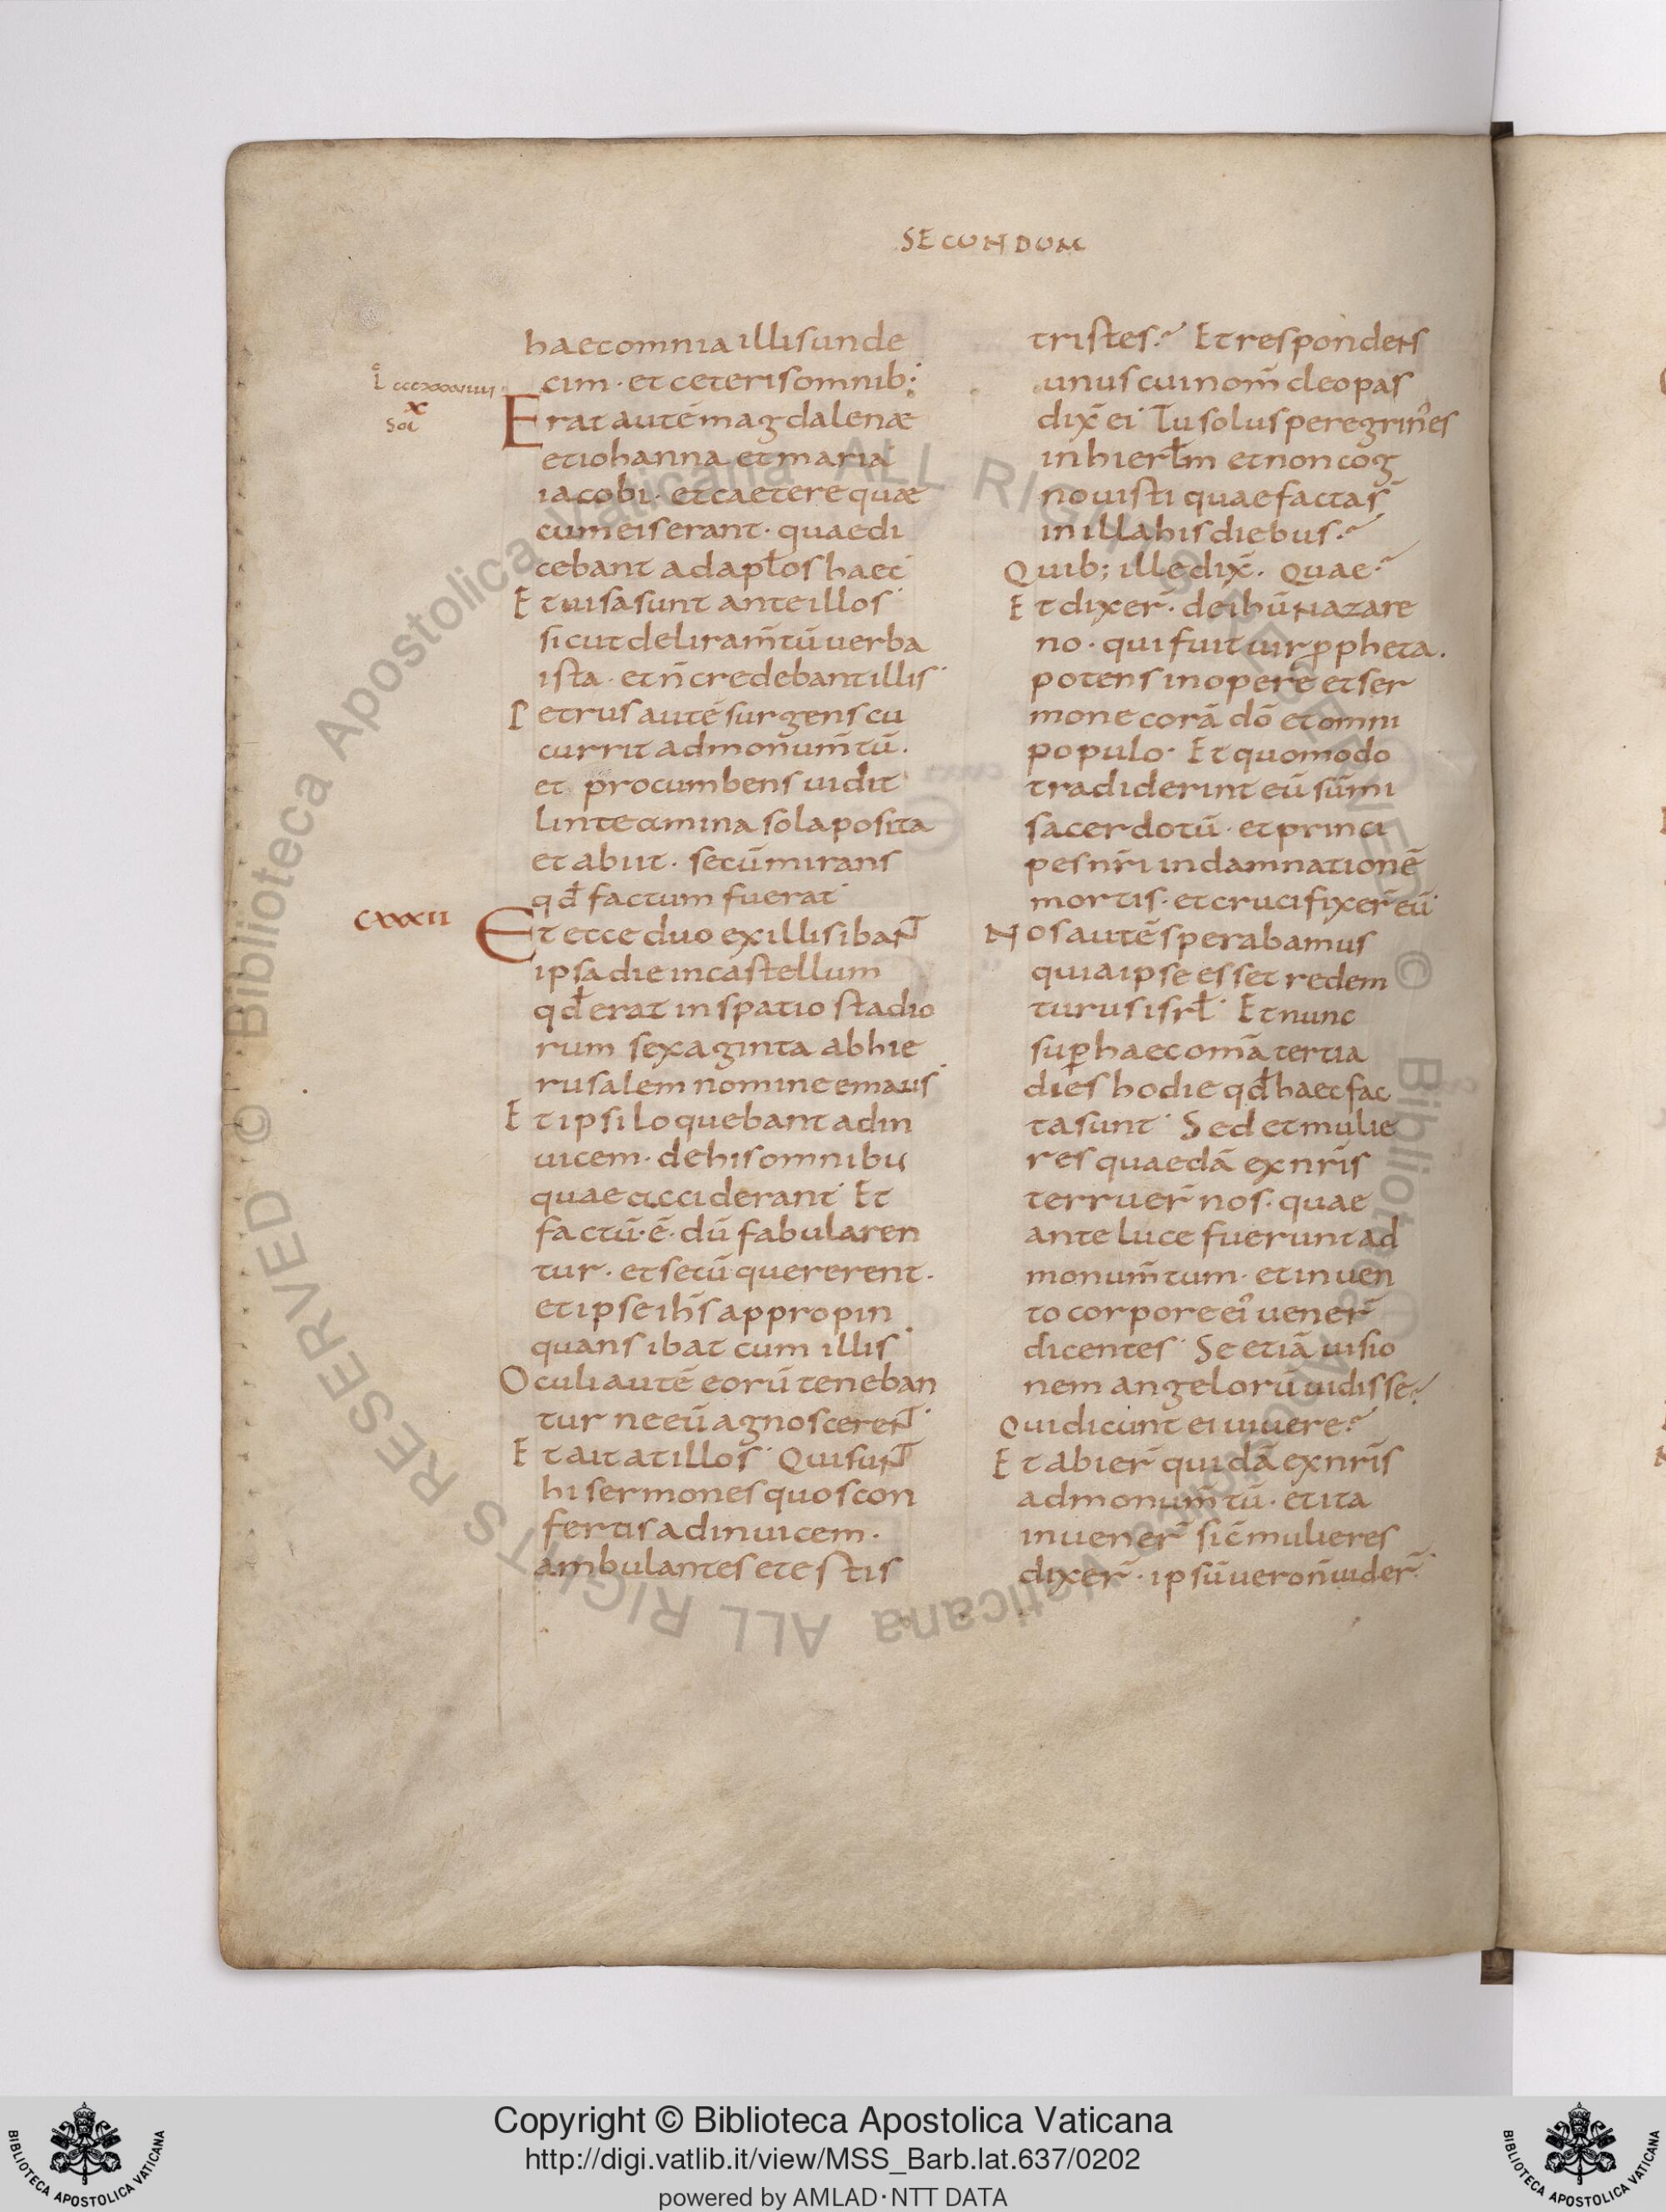 SECUNDUM
haec omnia illis unde
l̊ cccxxxuiiii
cim · et ceteris omnib;
x
Erat autē magdalenæ
et iohanna et maria
iacobi · et caetere quæ
cum eis erant · quae di
cebant ad apłos haec
Et uisa sunt ante illos
sicut deliram̄tū uerba
ista · et n̄ credebant illis
Petrus autē surgens cu
currit ad monum̄tū ·
et procumbens uidit
linteamina sola posita
et abiit · secū mirans
qđ factum fuerat
CXXXII
Et ecce duo ex illis ibaNT
ipsa die in castellum
qđ erat in spatio stadio
rum sexaginta ab hie
rusalem nomine emaus
Et ipsi loquebant ad in
uicem · de his omnibus
quae acciderant Et
factū · ē · dū fabularen
tur · et secū quererent ·
et ipse ih̄s appropin
quans ibat cum illis
Oculi autē eorū teneban
tur ne eū agnoscereNT
Et ait at illos Qui suNT
hi sermones quos con
fertis ad inuicem ·
ambulantes et estis
tristes? Et respondeNs
unus cui nom̄ cleopas
dix̄ ei Tu solus peregrin᾽es
in hierłm et non cog
nouisti quae facta s̄
in illa his diebus?
Quib; ille dix̄ · Quae?
Et dixer̄ · de ih̄u Nazare
no · qui fuit uir ꝓpheta ·
potens in opere et ser
mone corā dō et omni
populo · Et quomodo
tradiderint eū sūmi
sacerdotū · et princi
pes nr̄i in damnationē
mortis · et crucifixer̄ eū
Nos autē sperabamus
quia ipse esset redem
turus isrł Et nunc
suꝑ haec om̄a tertia
dies hodie qđ haec fac
ta sunt Sed et mulie
res quaedā ex nr̄is
terruer̄ nos · quae
ante luce fuerunt ad
monum̄tum · et inuen
to corpore ei᾽ uener̄
dicentes Se etiā uisio
nem angelorū uidisse?
Qui dicunt ei uiuere?
Et abier̄ quidā ex nr̄is
ad monum̄tū · et ita
inuener̄ sic̄ mulieres
dixer̄ · ipsū uero n̄ uider̄
© Biblioteca Apostolica Vaticana ALL RIGHTS RESERVED
© Biblioteca Apostolica Vaticana ALL RIGHTS RESERVED
BIBLIOTECA APOSTOLICA VATICANA
Copyright © Biblioteca Apostolica Vaticana
http://digi.vatlib.it/view/MSS_Barb.lat.637/0202
powered by AMLAD·NTT DATA
BIBLIOTECA APOSTOLICA VATICANA